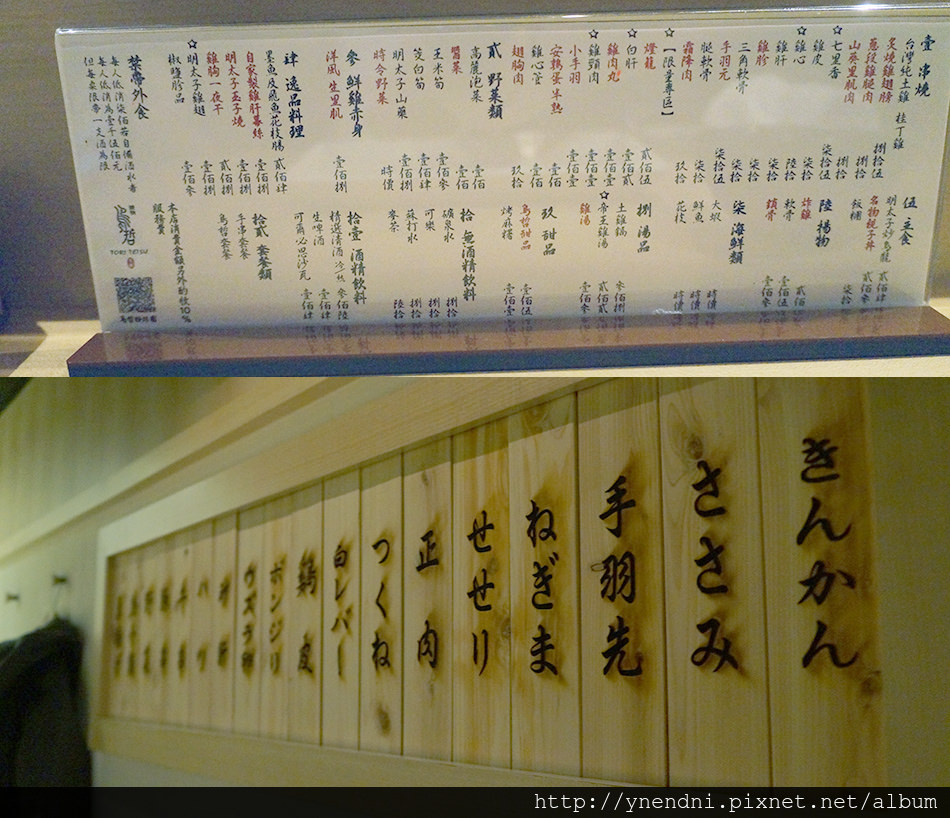 壹 串燒
台灣純土雞 桂丁雞
炙燒雞翅膀 捌拾伍
蔥段雞腿肉 捌拾
山葵里肌肉 捌拾
七里香 柒拾伍
雞皮 柒拾
雞心 陸拾
雞肝 柒拾
雞胗 柒拾
三角軟骨 柒拾
手羽元 柒拾伍
腿軟骨 柒拾
霜降肉 玖拾
【限量專區】
燈籠 貳佰伍
白肝 壹佰貳
雞肉丸 壹佰壹
雞頸肉 壹佰壹
小手羽 壹佰壹
安鶉蛋半熟 壹佰
雞心管 壹佰
翅胸肉 玖拾
貳 野菜類
高麗泡菜 壹佰
醬菜 壹佰
玉米筍 壹佰參
茭白筍 壹佰肆
明太子山藥 壹佰捌
時令野菜 時價
參 鮮雞赤身
洋風生里肌 壹佰捌
肆 逸品料理
墨魚及飛魚花枝腸 貳佰肆
自家製雞肝慕絲 壹佰捌
明太子玉子燒 貳佰捌
雞胸一夜干 壹佰捌
明太子雞翅 壹佰參
椒鹽胗品
伍 主食
明太子炒烏龍 貳佰肆
名物親子丼 貳佰參
飯糰 柒拾
陸 揚物
炸雞 貳佰
軟骨 壹佰伍
頸骨 壹佰參
柒 海鮮類
大蝦 時價
鮮魚 時價
花枝 時價
捌 湯品
土雞鍋 參佰捌
帝王雞湯 貳佰伍
雞湯 壹佰參
玖 甜品
烏哲甜品 壹佰伍
烤麻糬 壹佰壹
拾 無酒精飲料
礦泉水 捌拾
可樂 捌拾
蘇打水 捌拾
麥茶 陸拾
拾壹 酒精飲料
精選清酒
生啤酒 壹佰肆
可爾必思沙瓦 壹佰肆
拾貳 套套類
本店消費金額另外酌收10%
服務費
禁帶外食
每人低消柒佰若自備酒水者
每人低消為壹千伍佰元
但每桌限帶一支酒為限
TORI TETSU
きんかん
ささみ
手羽先
ねぎま
せせり
正肉
つくね
白レバー
鶏皮
ボンジリ
ウズラ卵
ハツ
http://ynendni.pixnet.net/album